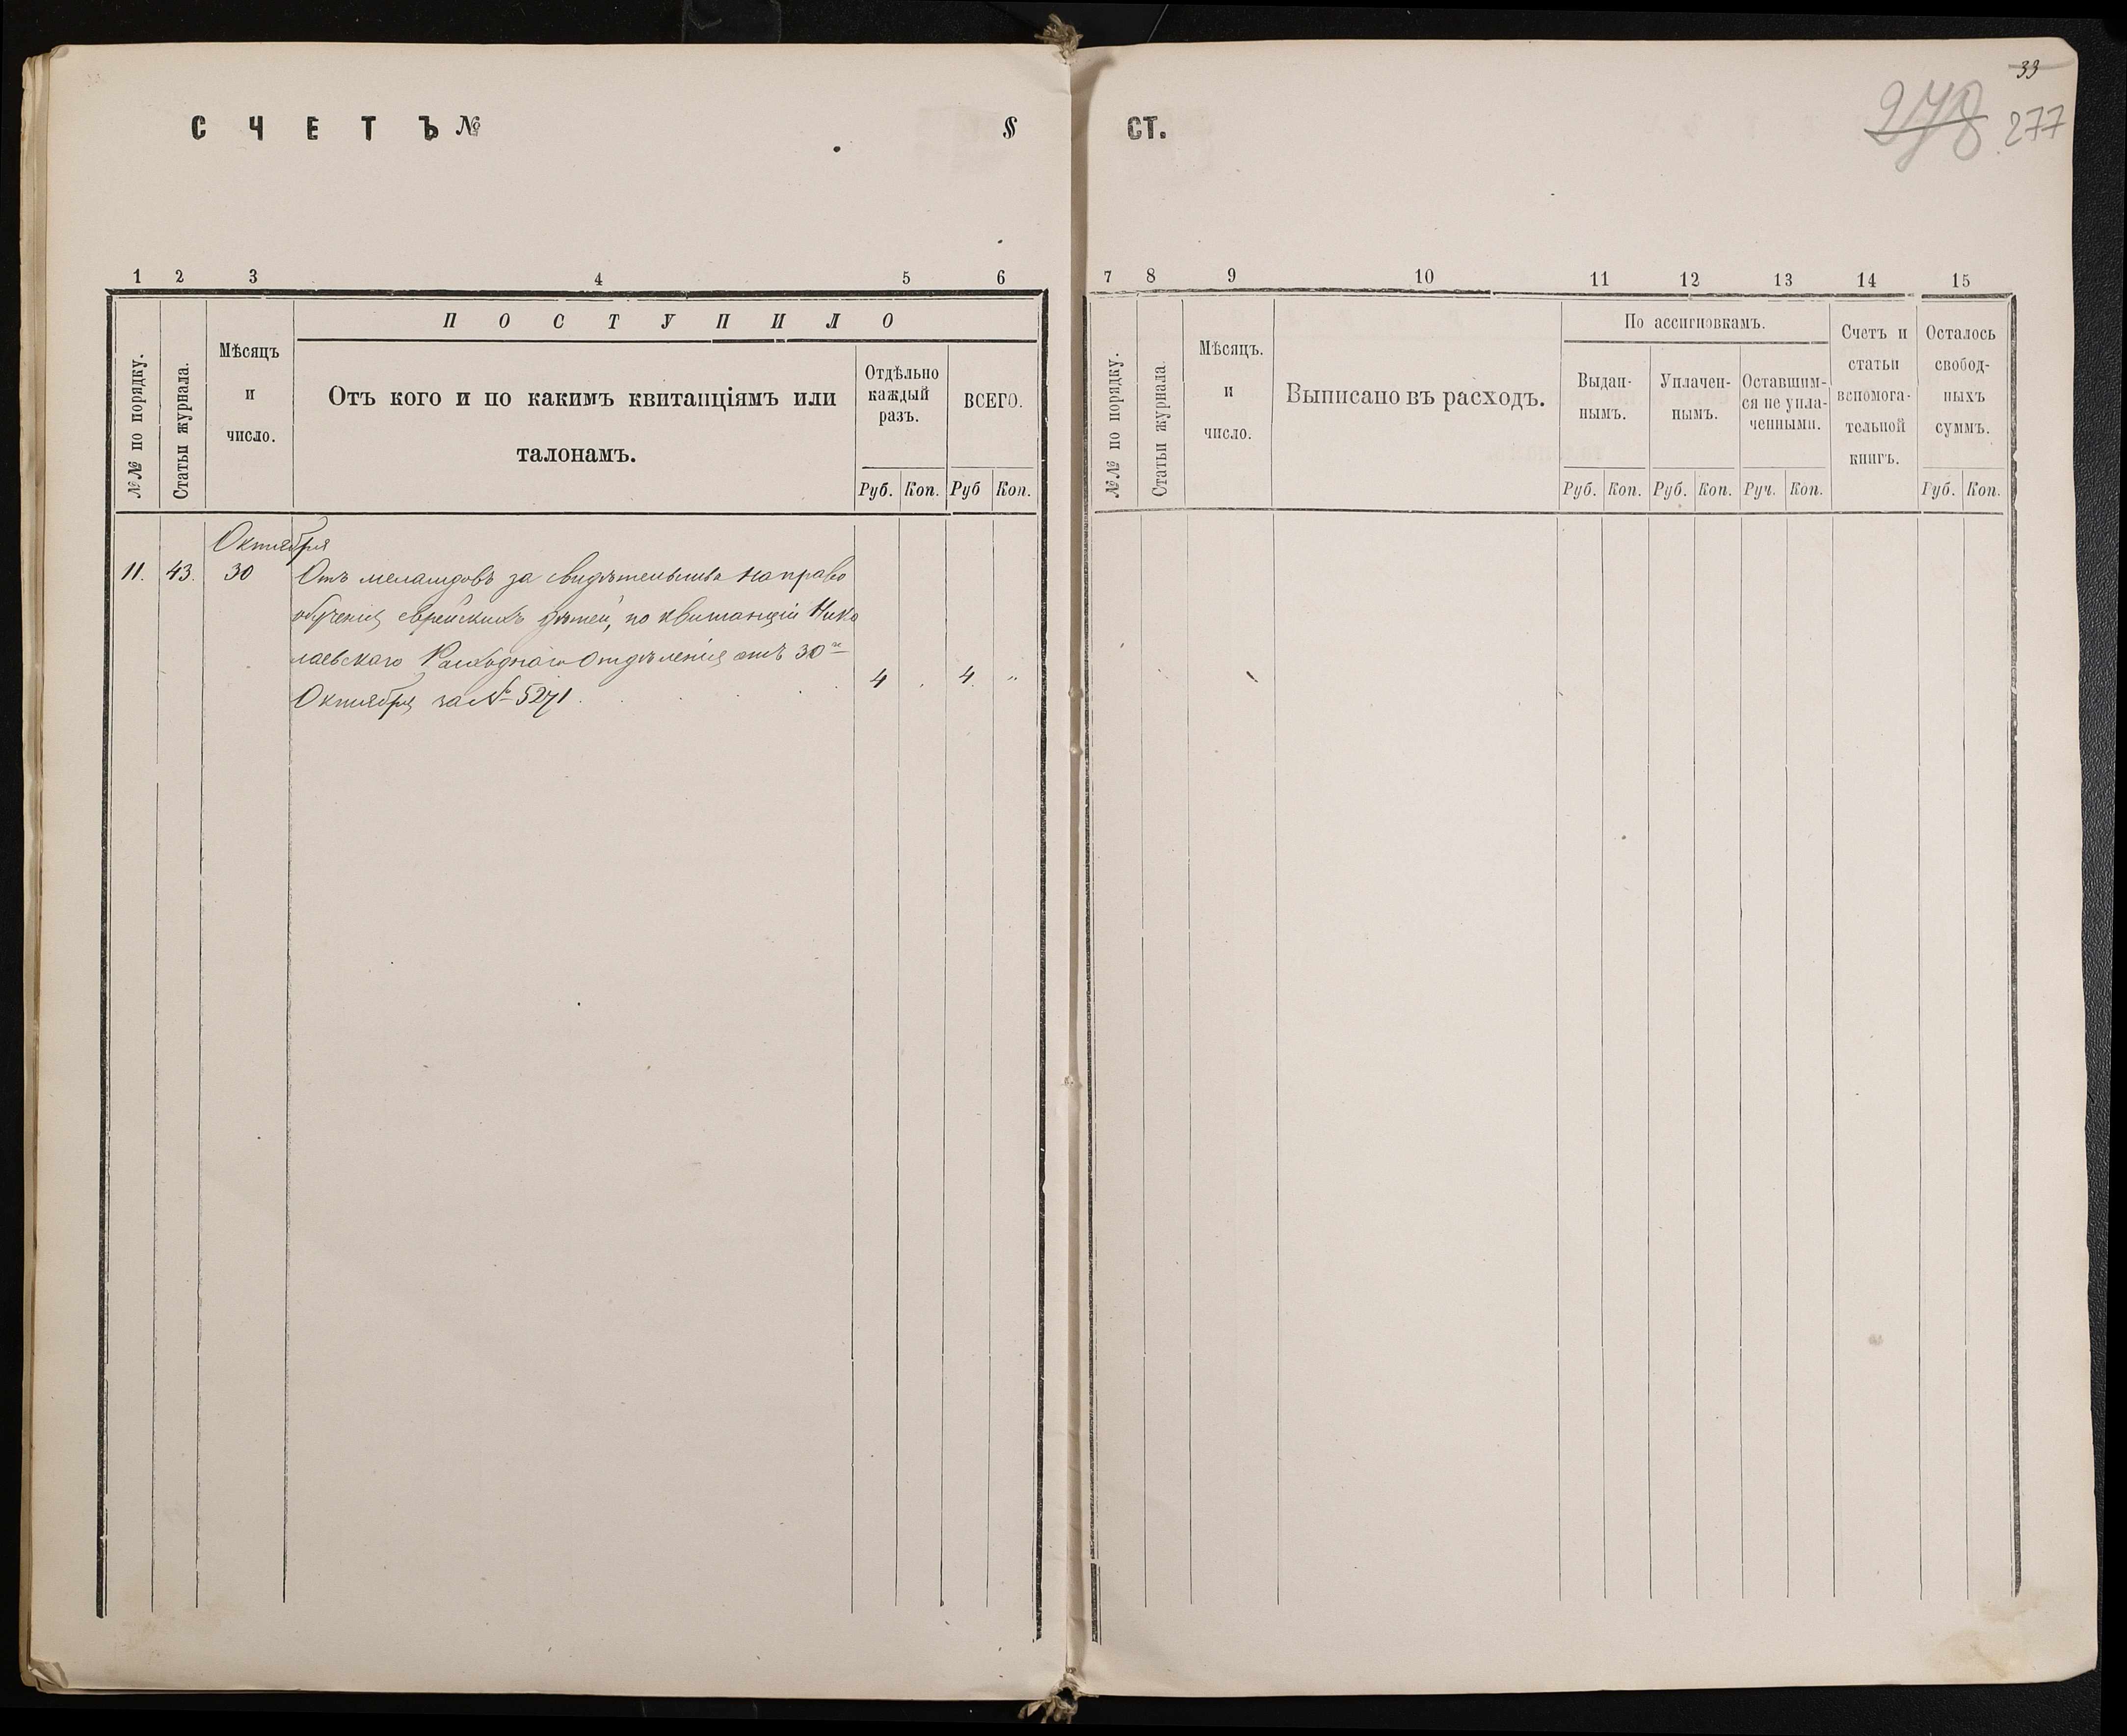 33
278 277
С Ч Е Т Ъ № § СТ.
1 2 3 4 5 6
№№ по порядку.
Статьи журнала.
Мѣсяцъ
и
число.
П О С Т У П И Л О
Отъ кого и по какимъ квитанціямъ или
талонамъ.
Отдѣльно
каждый
разъ.
ВСЕГО.
Руб. Коп. Руб Коп.
Октября
11. 43. 30 Отъ меламдовъ за свидѣтельства на право
обученія еврейскихъ дѣтей, по квитанціи Нико
лаевскаго Расходнаго Отдѣленія отъ 30го
4 . 4. "
Октября за № 5271.
7 8 9 10 11 12 13 14 15
№№ по порядку.
Статьи журнала.
Мѣсяцъ.
и
число.
Выписано въ расходъ.
По ассигновкамъ.
Выдан-
нымъ.
Уплачен-
нымъ.
Оставшим-
ся не упла-
ченными.
Счетъ и
статьи
вспомога-
тельной
книгъ.
Осталось
свобод-
ныхъ
суммъ.
Руб. Коп. Руб. Коп. Руч. Коп. Руб. Коп.